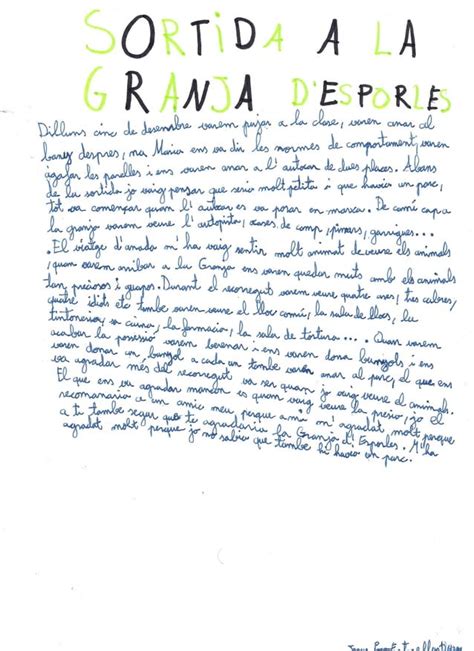 SORTIDA A LA
GRANJA D'ESPORLES
Dilluns cinc de desembre varem pujar a la clase, varem anar al
bany despres, na Maria ens va dir les normes de comportament, varem
agafar les parelles i ens varem anar a l'autocar de dues places. Abans
de la sortida jo vaig pensar que seria molt petita i que havia un parc,
tot va començar quan l'autocar es va posar en marxa. De camí cap a
la granja varem veure l'autopista, cases de camp, pinars, garrigues...
El viatge d'anada m'ha vaig sentir molt animat de veure els animals
, quan varem arribar a la Granja ens varem quedar muts amb els animals
tan preciosos i guapos. Durant el recorregut varem veure quatre aves, tres
quatre idiots etc tambe varem veure el lloc comú, la sala de lloes, la
tintoreria, sa cuina, la farmacia, la sala de tortura... Quan varem
acabar la varem berenar i ens varem dona bunyols i ens
varem donar un bunyol a cada un tambe varem anar al parc, el que ens
va agradar més del recorregut va ser quan jo vaig veure el animals.
El que ens va agradar mancon es quan vaig veure la presio, jo el
recomanario a un amic meu perque a mi m'agudat molt perque
a ti tambe segur que te agradaria la Granja d'Esporles. M'ha
agradat molt perque jo no sabia que tambe hi havia un parc.